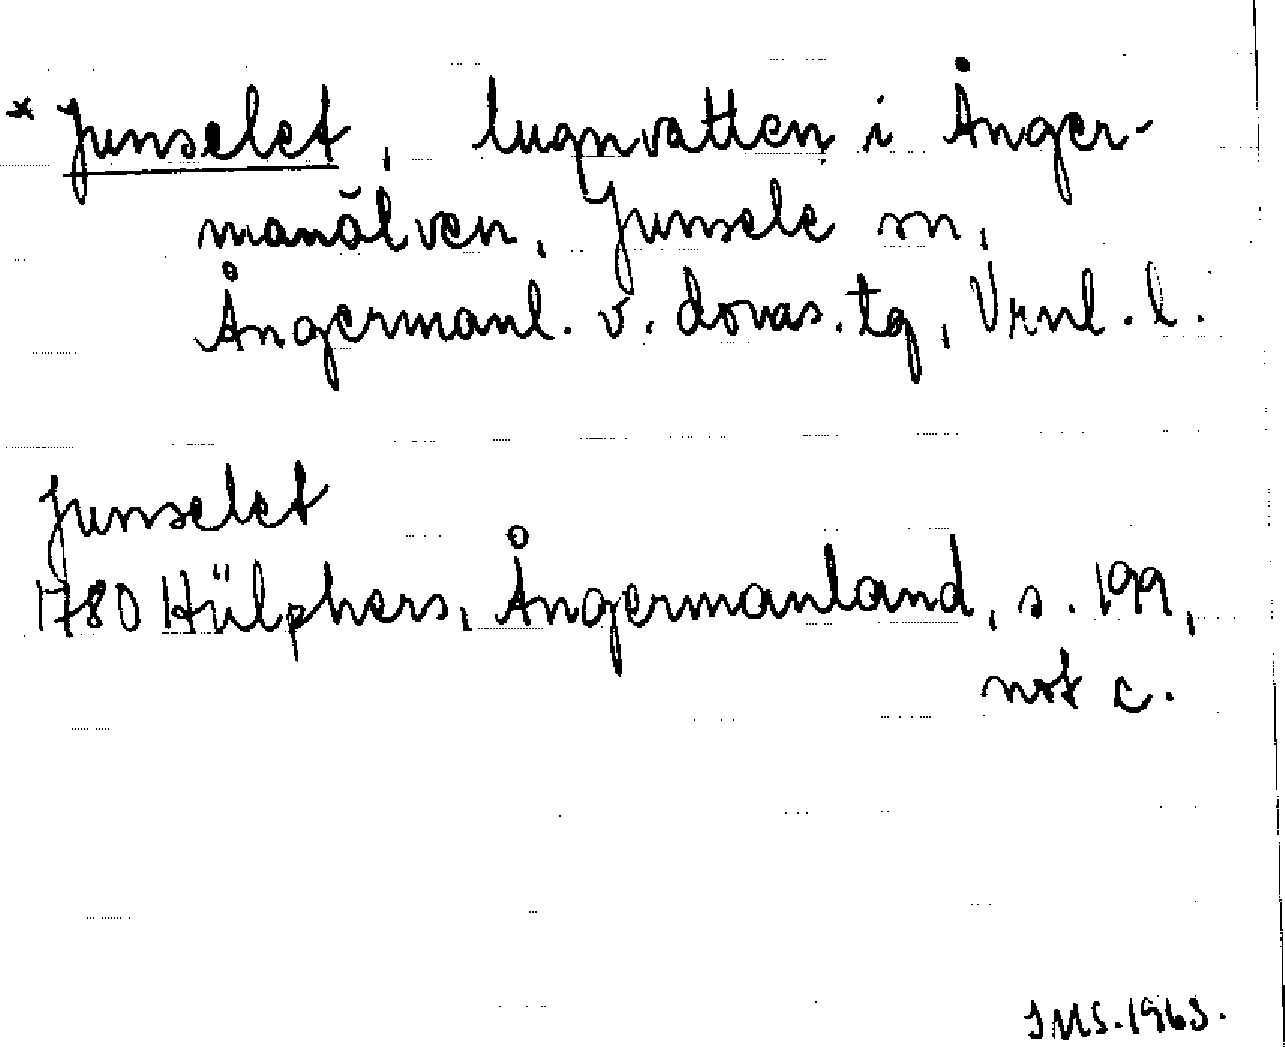 * Junselet, lugnvatten i Ånger-
manälven, Junsele sn,
Ångermanl. v. domas. tg, Vrnl. l.
Junselet
1780 Hülphers, Ångermanland, s. 199,
not c.
IMS. 1963.